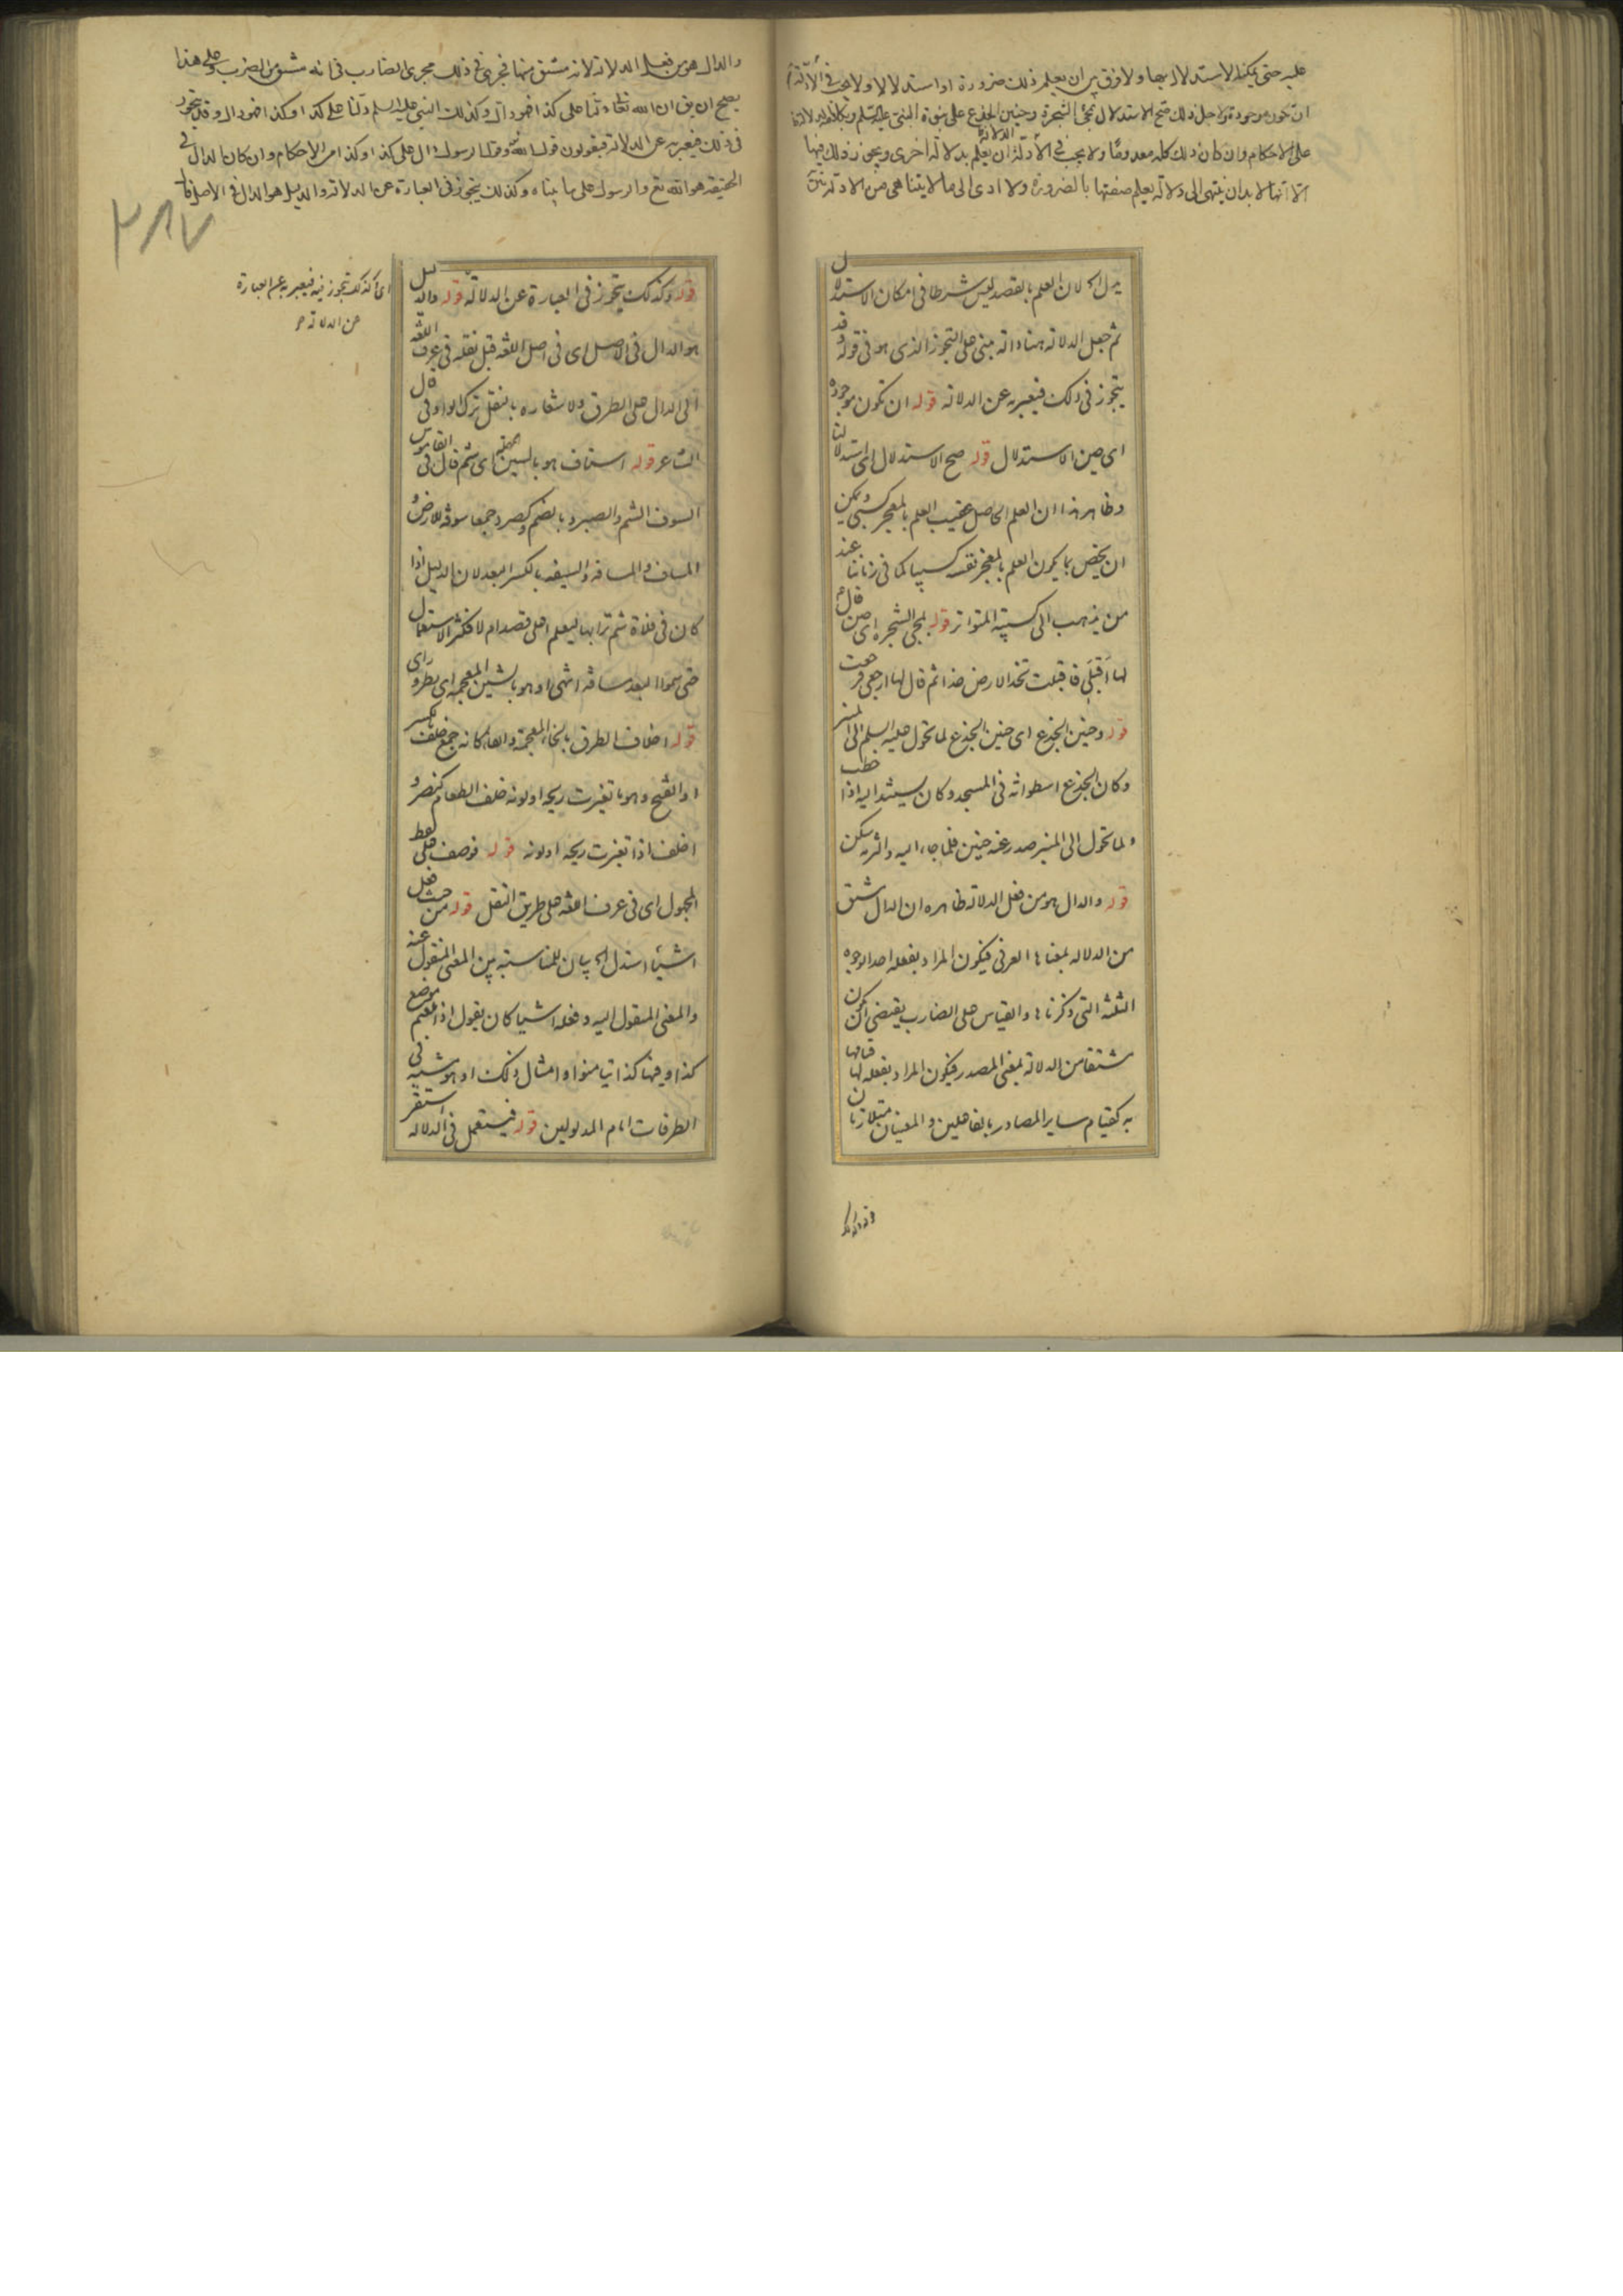 عليه حتى يمكنه الاستدلال بها ولا فرق بين ان يعلم ذلك ضرورة او استدلالا ولا يجب في الادلة
ان تكون موجودة ولاجل ذلك صح الاستدلال بمجئ الشجرة وحنين الجذع على نبوة النبي عليه السلم
على الاحكام وان كان ذلك كله معدوما ولا يجب في الأدلة ان يعلم بدلالة اخرى ويجوز ذلك فيها
الا انها لا بد ان ينتهى الى دلالة يعلم صفتها بالضرورة ولا ادى الى ما لا يتناهى من الادلة
يدل اه لان العلم بالقصد ليس شرطا في امكان الاستدلال
ثم جعل الدلالة هنا دالة مبنى على التجوز الذى هو في قوله وقد
يتجوز في ذلك فيعبر به عن الدلالة قوله ان تكون موجودة
اى حين الاستدلال قوله صح الاستدلال اى استدلالنا
وظاهر هذا ان العلم الحاصل عقيب العلم بالمعجز كسبى ويمكن
ان يخص بما يكون العلم بالمعجز نفسه كسبيا كما في زماننا عند
من يذهب الى كسبية المتواتر قوله بمجئ الشجرة اى حين قال
لها اقبلى فاقبلت تخد الارض خدا ثم قال لها ارجعى فرجعت
قوله وحنين الجذع اى حنين الجذع لما تحول عليه السلم الى المنبر
وكان الجذع اسطوانة في المسجد وكان يستند اليه اذا خطب
ولما تحول الى المنبر صدر عنه حنين فلما جاء اليه والتزمه سكن
قوله والدال هو من فعل الدلالة ظاهره ان الدال مشتق
من الدلالة بمعناها العرفى فيكون المراد بفعله احد الوجوه
الثلثة التى ذكرناها والقياس على الضارب يقتضى ان يكون
مشتقا من الدلالة بمعنى المصدر فيكون المراد بفعله لها قيامها
به كقيام ساير المصادر بالفاعلين والمعنيان متلازمان
والدال هو من فعل الدلالة لانه مشتق منها فجرى في ذلك مجرى الضارب في انه مشتق من الضرب وعلى هذا
يصح ان يق ان الله تعالى دلنا على كذا فهو دال وكذلك النبي عليه السلم دلنا على كذا وكذا فهو دال وقد يتجوز
في ذلك فيعبر به عن الدلالة فيقولون قول الله وقول رسوله دال على كذا وكذا من الاحكام وان كان الدال في
الحقيقة هو الله تع والرسول على ما بيناه وكذلك يتجوز في العبارة عن الدلالة والدليل هو الدال في الاصل
٢٨٧
اى كذلك يتجوز فيه فيعبر به عن العبارة
عن الدلالة
قوله وكذلك يتجوز في العبارة عن الدلالة قوله والدليل
هو الدال في الاصل اى في اصل اللغة قبل نقله في عرف اللغة
الى الدال على الطريق ولاشعاره بالنقل ترك الواو في قال
الشاعر قوله استاف هو بالسين المهملة اى شم قال في القاموس
السوف الشم والصبر وبالضم وكصرد جمعا سوفة للارض و
المساف والمسافة والسيفة بالكسر البعد لان الدليل اذا
كان في فلاة شم ترابها ليعلم اعلى قصد ام لا فكثر الاستعمال
حتى سموا البعد مسافة انتهى او هو بالشين المعجمة اى نظر ورأى
قوله اخلاف الطرق بالخاء المعجمة والفاء كانه جمع خلف بالكسر
او الفتح وهو ما تغيرت ريحه او لونه خلف الطعام كنصر و
اخلف اذا تغيرت ريحه او لونه قوله فوصف على لفظ
المجهول اى في عرف اللغة على طريق النقل قوله من حيث فعل
اشياء استدل اه بيان للمناسبة بين المعنى المنقول عنه
والمعنى المنقول اليه وفعله اشياء كان يقول اذا بلغتم موضع
كذا وفيها كذا تيامنوا وامثال ذلك او هو مشيه في
الطرقات امام المدلولين قوله فيستعمل في الدلالة استقر